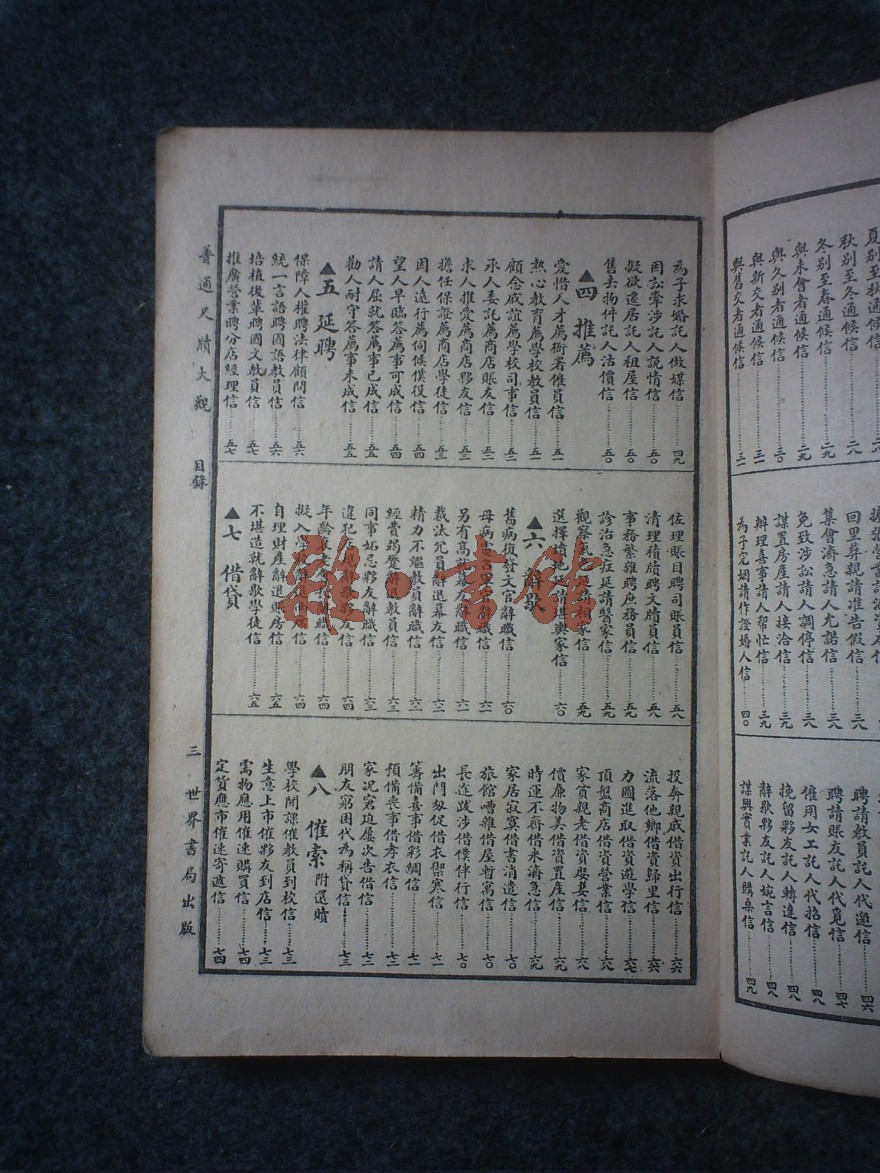 夏別至秋通候信
秋別至冬通候信⋯⋯二八
冬別至春通候信⋯⋯二九
與未會者通候信⋯⋯二九
與久別者通候信⋯⋯三〇
與新交者通候信⋯⋯三一
與舊交者通候信⋯⋯三一
回里葬親請准告假信⋯⋯三八
集會濟急請人允諾信⋯⋯三八
免致涉訟請人調停信⋯⋯三八
謀置房產請人接洽信⋯⋯三九
辦理喜事請人帮忙信⋯⋯三九
為子完姻請作證婚人信⋯⋯四〇
聘請教員託人代邀信⋯⋯四六
聘請賬友託人代覓信⋯⋯四七
僱用女工託人代招信⋯⋯四八
挽留夥友託人轉達信⋯⋯四八
辭歇夥友託人婉言信⋯⋯四八
謀興實業託人購桑信⋯⋯四九
為子求婚託人做媒信⋯⋯四九
因訟牽涉託人說情信⋯⋯五〇
擬欲遷居託人租屋信⋯⋯五〇
售去物件託人沽價信⋯⋯五〇
▲四 推薦
愛惜人才薦衙署僱員信⋯⋯五一
熱心教育薦學校教員信⋯⋯五一
顧念戚誼薦學校司事信⋯⋯五二
承人委託薦商店賬友信⋯⋯五二
求人推愛薦商店夥友信⋯⋯五三
擔任保證薦商店學徒信⋯⋯五三
因人遠行薦伺候僕役信⋯⋯五四
望人早臨答薦事可成信⋯⋯五四
請人屈就答薦事已成信⋯⋯五五
勸人耐守答薦事未成信⋯⋯五五
▲五 延聘
保障人權聘法律顧問信⋯⋯五六
統一言語聘國語教員信⋯⋯五六
培植後輩聘國文教員信⋯⋯五七
推廣營業聘分店經理信⋯⋯五七
佐理賬目聘司賬員信⋯⋯五八
清理積牘聘文牘員信⋯⋯五八
事務繁雜聘庶務員信⋯⋯五九
診治急症延請醫家信⋯⋯五九
觀察氣色延請相家信⋯⋯五九
選擇墳地延請堪輿家信⋯⋯六〇
▲六 辭歇
舊病復發文官辭職信⋯⋯六〇
母病告
信⋯⋯六一
另有高就幕友辭職信⋯⋯六一
裁汰冗員辭退幕友信⋯⋯六二
精力不繼教員辭職信⋯⋯六二
經費竭蹷辭退教員信⋯⋯六三
同事妬忌夥友辭職信⋯⋯六三
違犯店規辭歇夥友信⋯⋯六四
年齡衰老
辭職信⋯⋯六四
擬入學校辭退西席信⋯⋯六四
自理財產辭退賬房信⋯⋯六五
不堪造就辭歇學徒信⋯⋯六五
▲七 借貸
投奔親戚借資出行信⋯⋯六六
流落他鄉借資歸里信⋯⋯六六
力圖進取借資遊學信⋯⋯六七
頂盤商店借資營業信⋯⋯六八
家貧親老借資娶妻信⋯⋯六八
價廉物美借資置產信⋯⋯六九
時運不齊借米濟急信⋯⋯六九
家居寂寞借書消遣信⋯⋯七〇
旅館嘈雜借屋暫寓信⋯⋯七〇
長途跋涉借僕伴行信⋯⋯七〇
出門匆促借衣禦寒信⋯⋯七一
籌備喜事借彩綢信⋯⋯七一
預備喪事借孝衣信⋯⋯七二
家況窘迫屢次告借信⋯⋯七二
朋友窮困代為稱貸信⋯⋯七三
▲八 催索 附還贖
學校開課催教員到校信⋯⋯七三
生意上市催夥友到店信⋯⋯七三
需物應用催速購買信⋯⋯七四
定貨應市催速寄遞信⋯⋯七四
普通尺牘大觀 目錄 三 世界書局出版